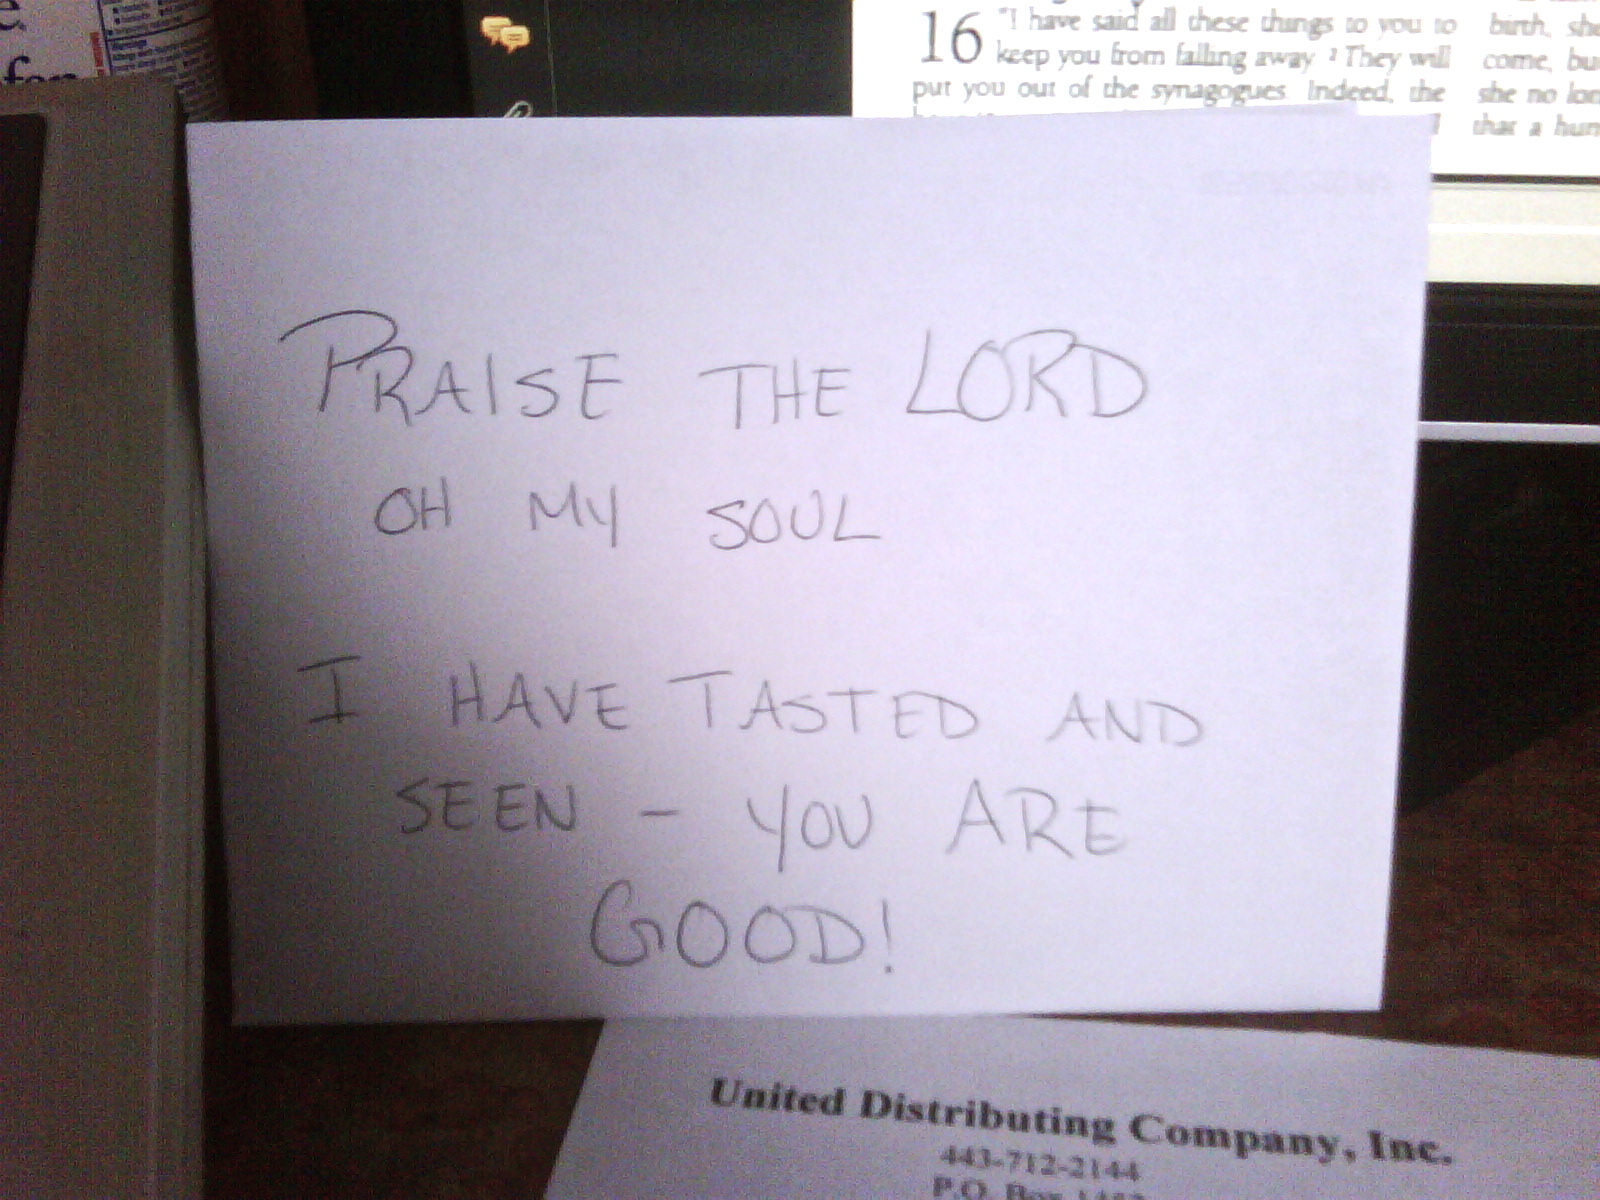 e.
for
16 "I have said all these things to you to
keep you from falling away. 2 They will
put you out of the synagogues. Indeed, the
birth, she
come, bu
she no lon
that a hum
PRAISE THE LORD
OH MY SOUL
I HAVE TASTED AND
SEEN - YOU ARE
GOOD!
United Distributing Company, Inc.
443-712-2144
P.O. Box